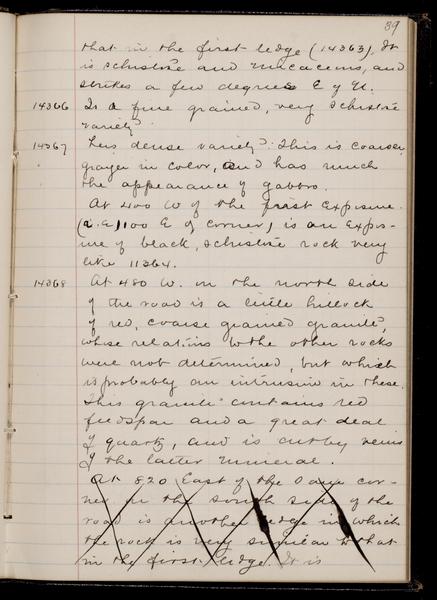 89
that in the first ledge (14363). It
is schistose and micaceous, and
strikes a few degrees E of N.
14366 Is a fine grained, very schistose
variety.
14367 Less dense variety. This is coarser,
grayer in color, and has much
the appearance of gabbro.
At 400 W of the first exposure
(i.e. 1100 E of corner) is an expos-
ure of black, schistose rock very
like 11364.
14368 At 480 W. on the north side
of the road is a little hillock
of red, coarse grained granite,
whose relations to the other rocks
were not determined, but which
is probably an intrusive in these.
This granite contains red
feldspar and a great deal
of quartz, and is cut by veins
of the latter mineral.
At 820 East of the same cor-
ner on the south side of the
road is another ledge in which
the rock is very similar to that
in the first ledge. It is